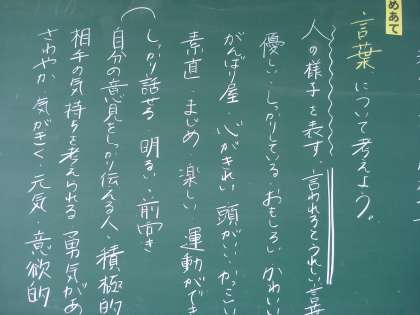 めあて
言葉について考えよう。
人の様子を表す・言われるとうれしい言葉
優しい・しっかりしている・おもしろい・かわいい
がんばり屋・心がきれい・頭がいい・かっこい
素直・まじめ・楽しい・運動ができ
しっかり話せる・明るい・前向き
自分の意見をしっかり伝える人 積極的
相手の気持ちを考えられる 勇気があ
さわやか・気がきく・元気・意欲的